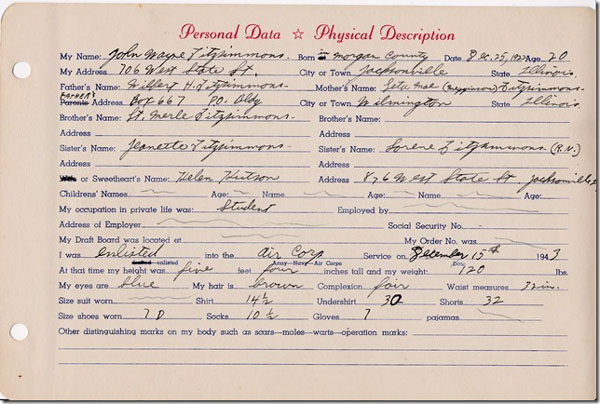 Personal Data ☆ Physical Description
My Name: John Wayne Fitzsimmons. Born in Morgan County Date Dec. 25, 1923 Age 20
My Address 706 West State St. City or Town Jacksonville State Illinois.
Father's Name: Wilbert H. Fitzsimmons. Mother's Name: Leta Mae Fitzsimmons
FATHER'S
Parents Address: Box 667 P.O. Bldg City or Town Wilmington State Illinois
Brother's Name: Lt. Merle Fitzsimmons. Brother's Name:
Address Address
Sister's Name: Jeanette Fitzsimmons Sister's Name: Lorene Fitzsimmons (R.N.)
Address Address
Wife or Sweetheart's Name: Helen Hutson Address 876 West State St Jacksonville
Childrens' Names Age: Name Age: Name Age:
My occupation in private life was: Student Employed by
Address of Employer Social Security No.
My Draft Board was located at My Order No. was
I was enlisted into the Air Corp Service on December 15th 1943
drafted enlisted Army—Navy—Air Corps Date
At that time my height was five feet four inches tall and my weight: 120 lbs.
My eyes are blue My hair is brown Complexion fair Waist measures 32 in.
Size suit worn Shirt 14 ½ Undershirt 30 Shorts 32
Size shoes worn 7 D Socks 10 ½ Gloves 7 pajamas
Other distinguishing marks on my body such as scars—moles—warts—operation marks: